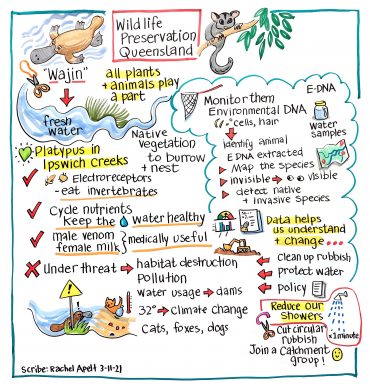 Wildlife
Preservation
Queensland
"Wajin"
all plants
+ animals play
a part
fresh
water
Native
vegetation
to burrow
+ nest
Platypus in
Ipswich Creeks
Electroreceptors
- eat invertebrates
Cycle nutrients
keep the water healthy
male venom
female milk
medically useful
Under threat → habitat destruction
Pollution
Water usage → dams
32° → Climate change
Cats, foxes, dogs
Monitor them
E-DNA
Environmental DNA
"cells, hair
Water
samples
identify animal
EDNA extracted
Map the species
invisible → visible
detect native
+ Invasive Species
Data helps
us understand
+ change ....
Clean up rubbish
protect water
policy
Reduce our
Showers
x 1 minute
Cut circular
rubbish
Join a Catchment
group!
Scribe: Rachel Apelt 3-11-21